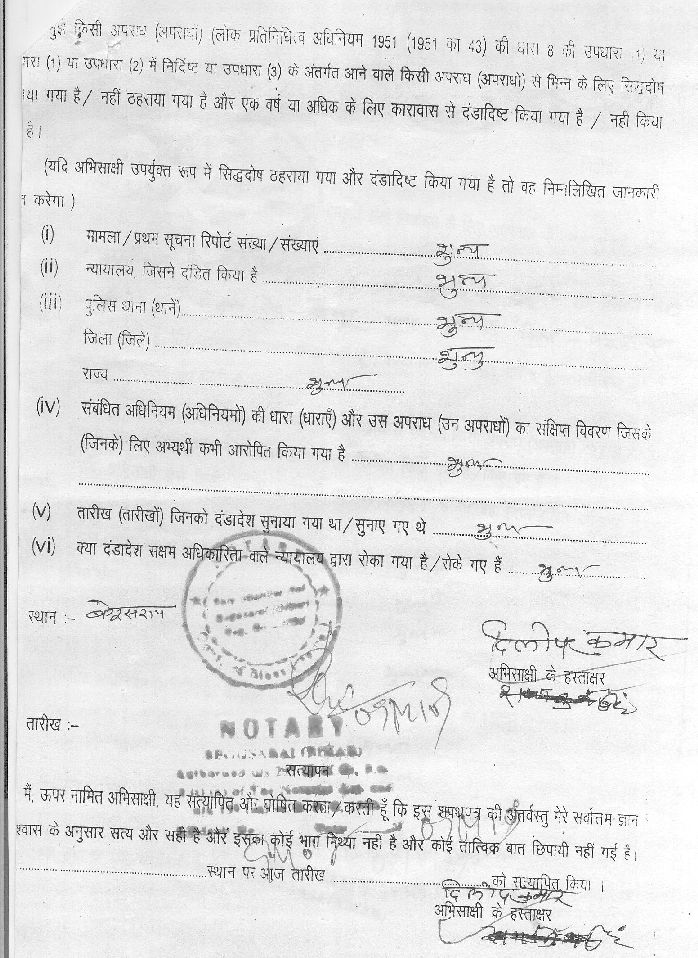 मुझे किसी अपराध (अपराधों) (लोक प्रतिनिधित्व अधिनियम 1951 (1951 का 43) की धारा 8 की उपधारा 1) या
(1) या उपधारा (2) में निर्दिष्ट या उपधारा (3) के अंतर्गत आने वाले किसी अपराध (अपराधों) से भिन्न के लिए सिद्धदोष
गया है / नहीं ठहराया गया है और एक वर्ष या अधिक के लिए कारावास से दंडादिष्ट किया गया है / नही किया
है।
(यदि अभिसाक्षी उपर्युक्त रूप में सिद्धदोष ठहराया गया और दंडादिष्ट किया गया है तो वह निम्नलिखित जानकारी
करेगा )
(i) मामला / प्रथम सूचना रिपोर्ट संख्या / संख्याएं शुन्य
(ii) न्यायालय, जिसने दंडित किया है शुन्य
(iii) पुलिस थाना (थाने) शुन्य
जिला (जिले) शुन्य
राज्य शुन्य
(iv) संबंधित अधिनियम (अधिनियमों) की धारा (धाराएँ) और उस अपराध (उन अपराधों) का संक्षिप्त विवरण जिसके
(जिनके) लिए अभ्यर्थी कभी आरोपित किया गया है शुन्य
(v) तारीख (तारीखों) जिनको दंडादेश सुनाया गया था / सुनाए गए थे शुन्य
(vi) क्या दंडादेश सक्षम अधिकारिता वाले न्यायालय द्वारा रोका गया है / रोके गए हैं शुन्य
स्थान :- बेगूसराय
दिलीप कुमार
अभिसाक्षी के हस्ताक्षर
तारीख :-
NOTARY
BEGUSARAI (BIHAR)
सत्यापन
मैं, ऊपर नामित अभिसाक्षी, यह सत्यापित और घोषित करता / करती हूँ कि इस शपथपत्र की अंतर्वस्तु मेरे सर्वोत्तम ज्ञान
श्वास के अनुसार सत्य और सही है और इसका कोई भाग मिथ्या नहीं है और कोई तात्विक बात छिपायी नहीं गई है।
स्थान पर आज तारीख को सत्यापित किया ।
दिलीप कुमार
अभिसाक्षी के हस्ताक्षर